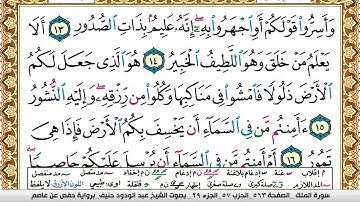 وَأَسِرُّوا۟ قَوْلَكُمْ أَوِ ٱجْهَرُوا۟ بِهِۦٓ ۖ إِنَّهُۥ عَلِيمٌۢ بِذَاتِ ٱلصُّدُورِ ١٣ أَلَا
يَعْلَمُ مَنْ خَلَقَ وَهُوَ ٱللَّطِيفُ ٱلْخَبِيرُ ١٤ هُوَ ٱلَّذِى جَعَلَ لَكُمُ
ٱلْأَرْضَ ذَلُولًا فَٱمْشُوا۟ فِى مَنَاكِبِهَا وَكُلُوا۟ مِن رِّزْقِهِۦ ۖ وَإِلَيْهِ ٱلنُّشُورُ
١٥ ءَأَمِنتُم مَّن فِى ٱلسَّمَآءِ أَن يَخْسِفَ بِكُمُ ٱلْأَرْضَ فَإِذَا هِىَ
تَمُورُ ١٦ أَمْ أَمِنتُم مَّن فِى ٱلسَّمَآءِ أَن يُرْسِلَ عَلَيْكُمْ حَاصِبًا
سورة الملك _ الصفحة ٥٦٣ _الحزب ٥٧ _الجزء ٢٩ _ بصوت الشيخ عبد الودود حنيف _برواية حفص عن عاصم